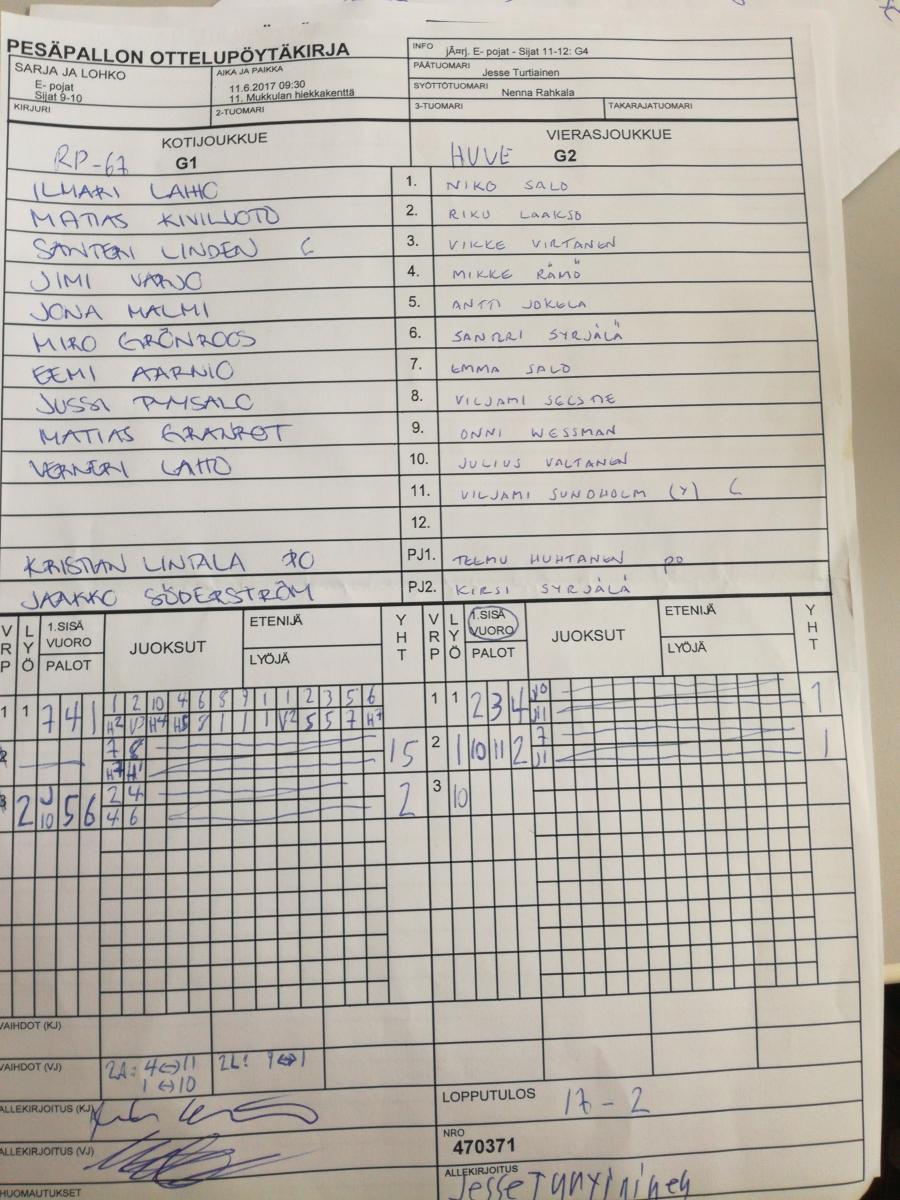 PESÄPALLON OTTELUPÖYTÄKIRJA
INFO jÃ¤rj. E- pojat - Sijat 11-12: G4
SARJA JA LOHKO
E- pojat
Sijat 9-10
AIKA JA PAIKKA
11.6.2017 09:30
11. Mukkulan hiekkakenttä
PÄÄTUOMARI
Jesse Turtiainen
SYÖTTÖTUOMARI
Nenna Rahkala
KIRJURI
2-TUOMARI
3-TUOMARI
TAKARAJATUOMARI
KOTIJOUKKUE
RP-67 G1
VIERASJOUKKUE
HUVE G2
ILMARI LAHO 1. NIKO SALO
MATIAS KIVILUOTO 2. RIKU LAAKSO
SANTERI LINDEN C 3. VIKKE VIRTANEN
JIMI VARJO 4. MIKKE RÄMÖ
JONA MALMI 5. ANTTI JOKELA
MIRO GRÖNROOS 6. SANTERI SYRJÄLÄ
EEMI AARNIO 7. EMMA SALO
JUSSI 8. VILJAMI
MATIAS GRANROT 9. ONNI WESSMAN
VERNERI LAHO 10. JULIUS VALTANEN
11. VILJAMI SUNDHOLM (Y) C
12.
KRISTIAN LINTALA PO PJ1. TEEMU HUHTANEN PO
JAAKKO SÖDERSTRÖM PJ2. KIRSI SYRJÄLÄ
VRP LYÖ 1.SISÄ VUORO PALOT JUOKSUT ETENIJÄ LYÖJÄ YHT
VRP LYÖ 1.SISÄ VUORO PALOT JUOKSUT ETENIJÄ LYÖJÄ YHT
1 1 7 4 1
1 2 10 4 6 8 9 1 1 2 3 5 6
H2 V3 H4 H5 8 1 1 1 V2 5 5 7 H7
1 1 2 3 4 1
2 7 8 15
2 1 10 11 2 7 1
3 2 10 5 6 2 4 2
4 6
3 10
VAIHDOT (KJ)
VAIHDOT (VJ) 2A: 4↔11
1↔10
2L: 9↔1
ALLEKIRJOITUS (KJ)
LOPPUTULOS 17-2
ALLEKIRJOITUS (VJ)
NRO
470371
ALLEKIRJOITUS
Jesse Turtiainen
HUOMAUTUKSET